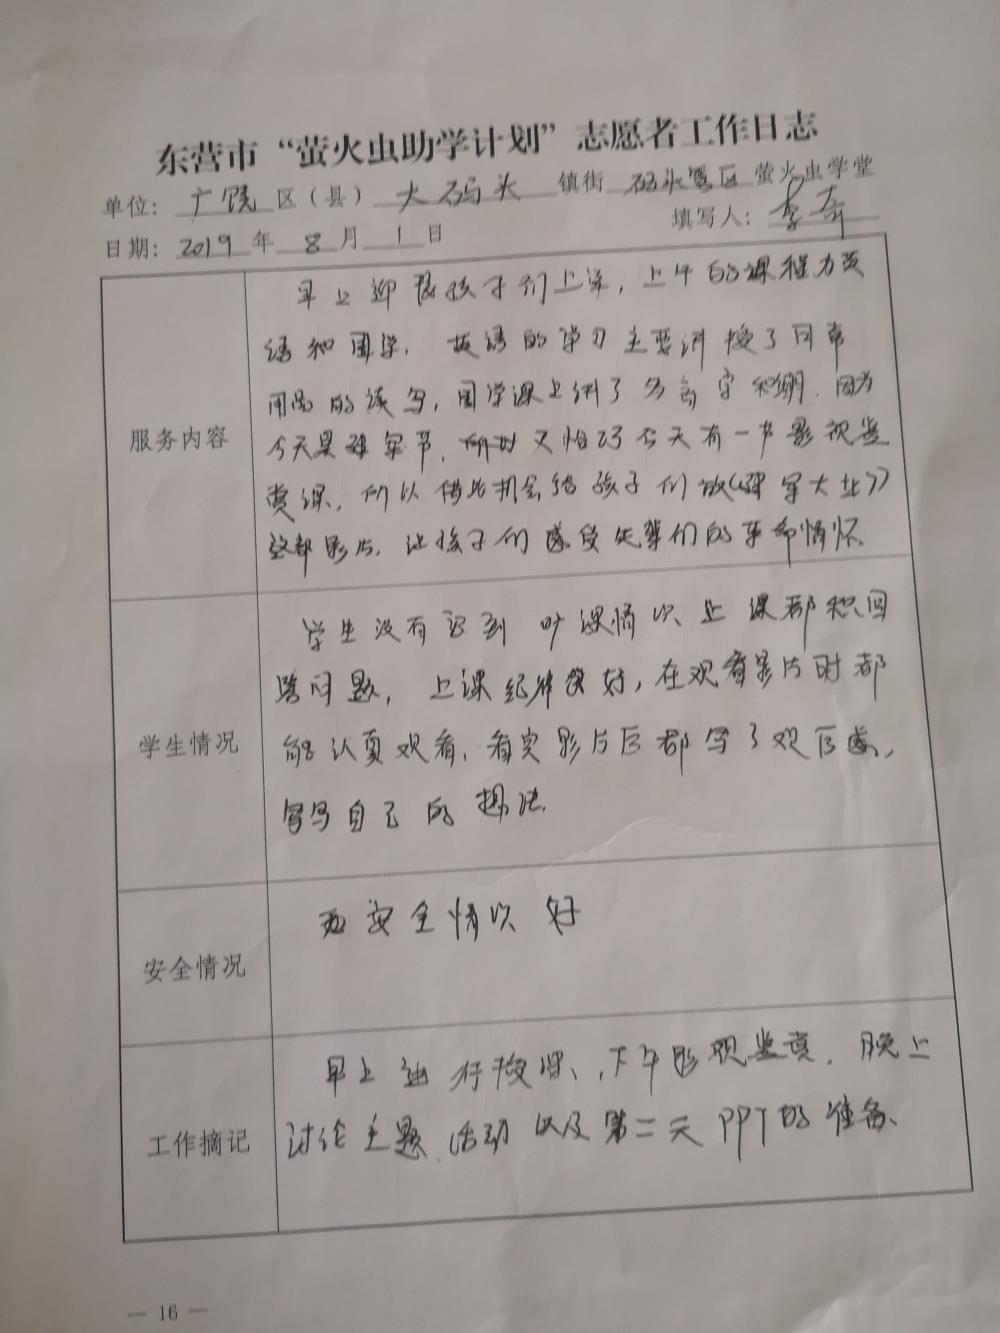 东营市“萤火虫助学计划”志愿者工作日志
单位：广饶区（县）大码头镇街 码头 区萤火虫学堂
日期：2019年8月1日 填写人：李奇
服务内容
早上迎接孩子们上课，上午的课程为英
语和国学，英语的学习主要讲授了日常
用品的读写，国学课上讲了 字和绷，因为
今天是建军节，所以又恰巧今天有一节影视鉴
赏课，所以借此机会给孩子们放《建军大业》
这部影片，让孩子们感受先辈们的革命情怀.
学生情况
学生没有迟到 旷课情况 上课都积回
答问题，上课纪律良好，在观看影片时都
能认真观看，看完影片后都写了观后感，
写写自己的想法.
安全情况
安全情况好
工作摘记
早上进行授课，下午影视鉴赏，晚上
讨论主题活动以及第二天PPT的准备.
— 16 —